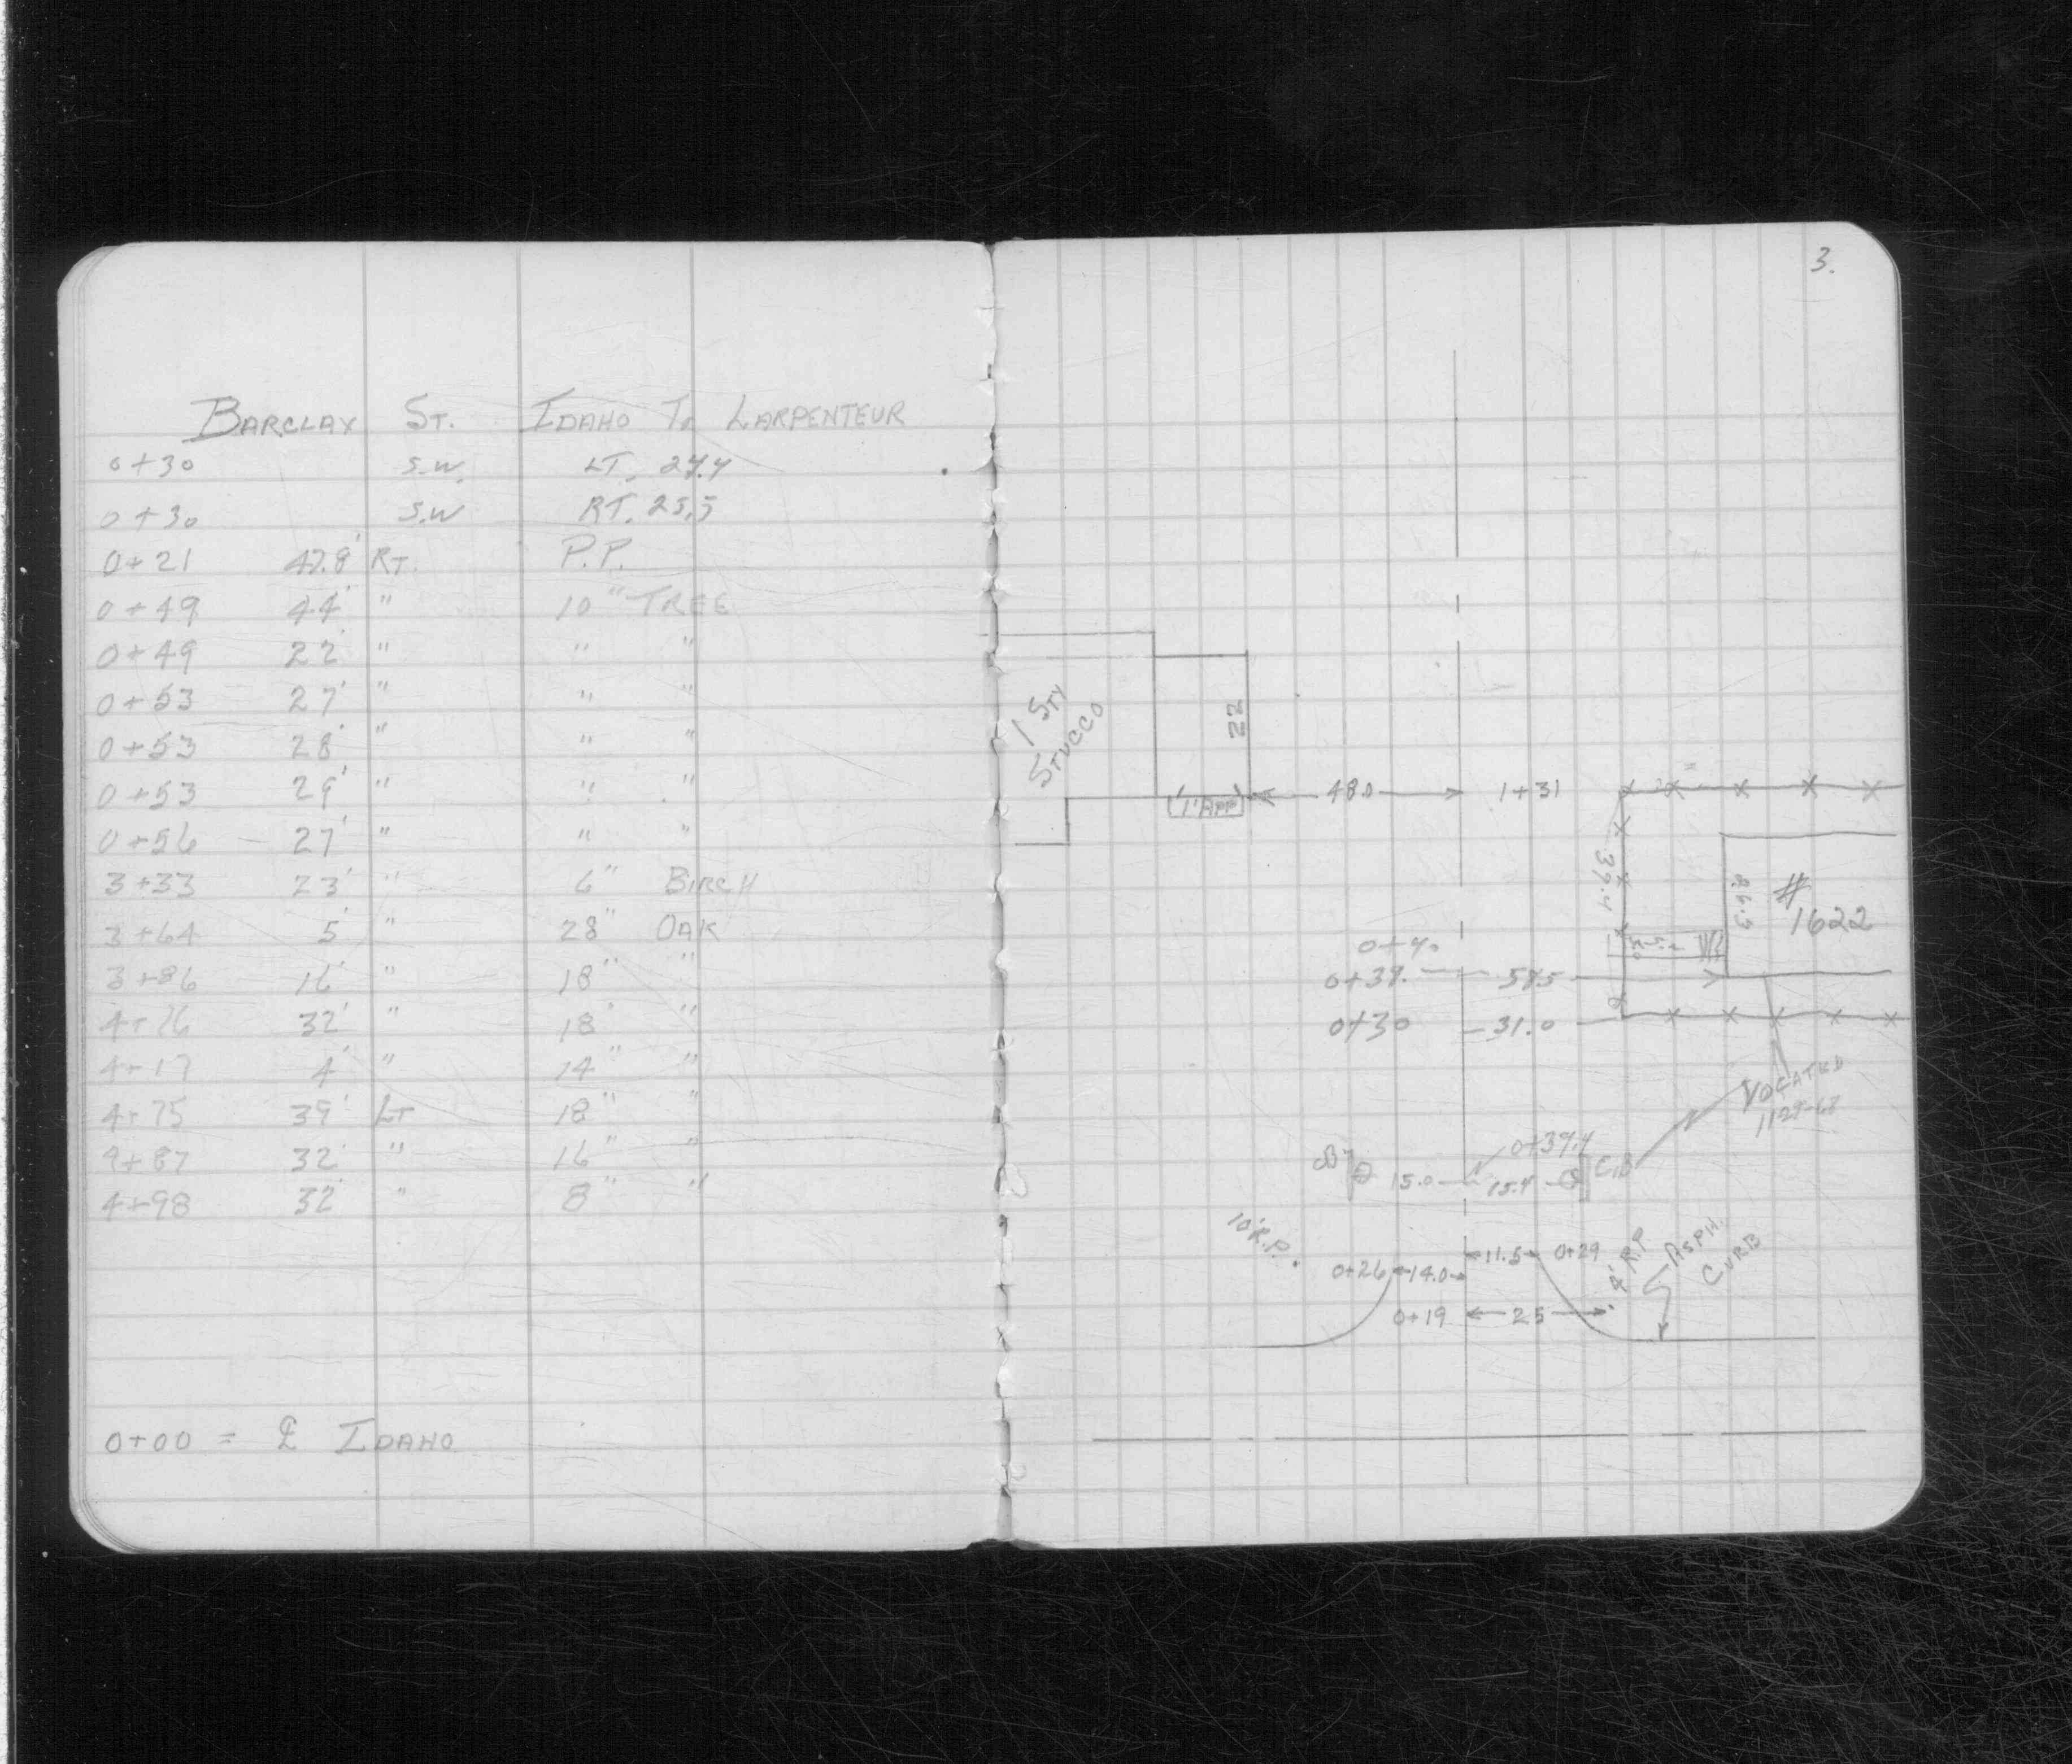 BARCLAY ST. IDAHO TO LARPENTEUR
0+30 S.W. LT. 27.4
0+30 S.W RT. 25.5
0+21 47.8' RT. P.P.
0+49 44' " 10" TREE
0+49 22' " " "
0+53 27' " " "
0+53 28' " " "
0+53 29' " " "
0+56 27' " " "
3+33 23' " 6" BIRCH
3+64 5' " 28" OAK
3+86 16' " 18" "
4+16 32' " 18" "
4+17 4' " 14" "
4+75 39' LT 18" "
4+87 32' " 16" "
4+98 32' " 8" "
0+00 = ℄ IDAHO
3.
1 STY
STUCCO
22
1' APP
48.0
1+31
39.4
#
1622
0+40
0+39.
0+30 31.0
1129-67
0+39.4
15.0 15.4 C.B
10' R.P.
0+26 14.0 11.5 0+29
4' R.P
ASPH.
CURB
0+19 25